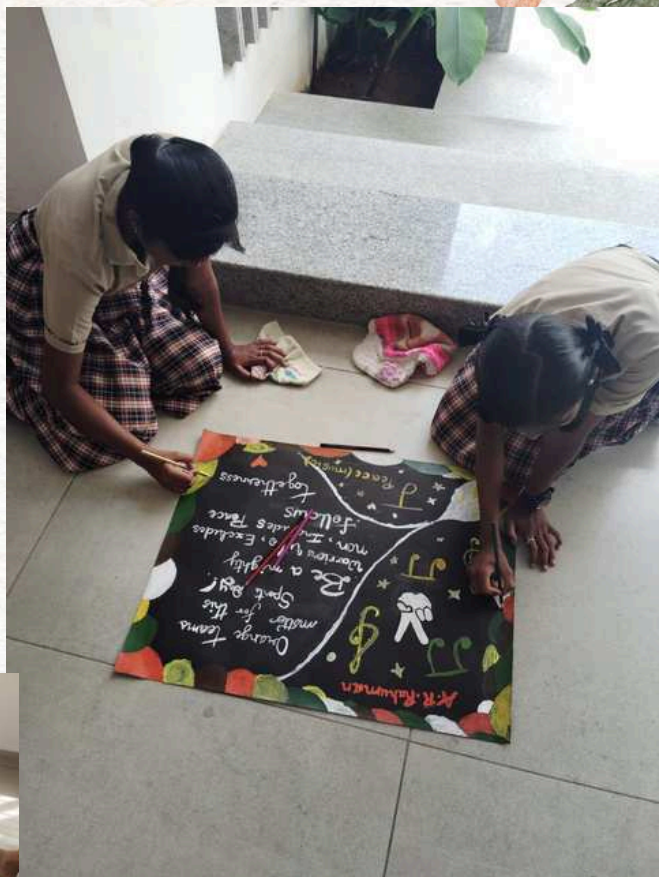 A.R.Rahuman
Orange teams
motto for this
Sport Day!
Be a mighty
Warriors Who, Excludes
non, Includes Peace
follows
togetherness
Peace (music)